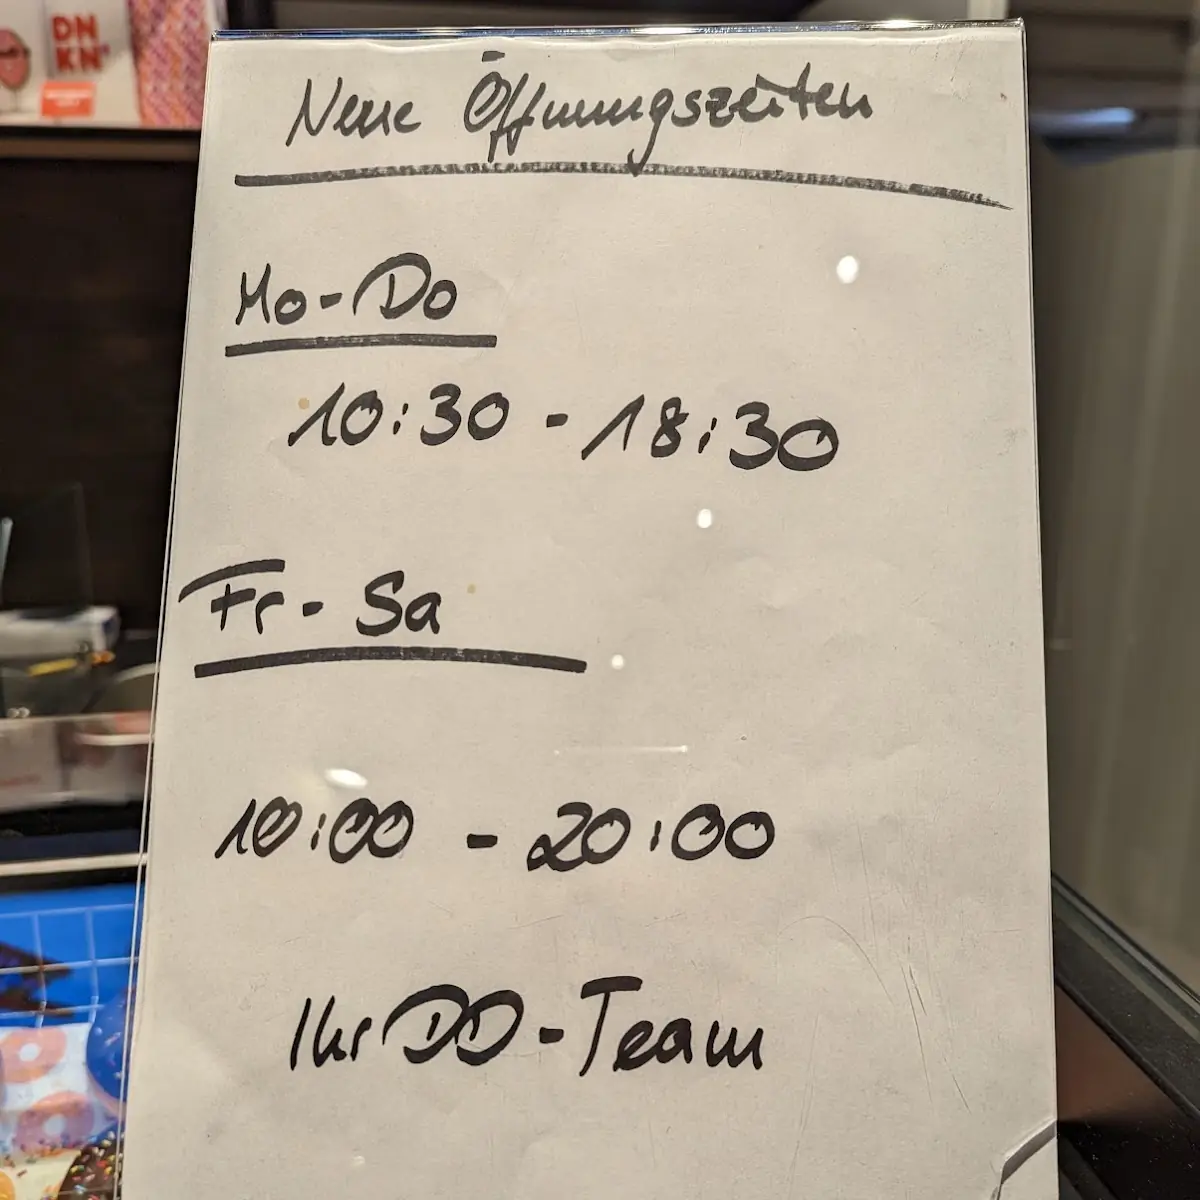 DN
KN
Neue Öffnungszeiten
Mo-Do
10:30 - 18:30
Fr - Sa
10:00 - 20:00
Ihr DD-Team